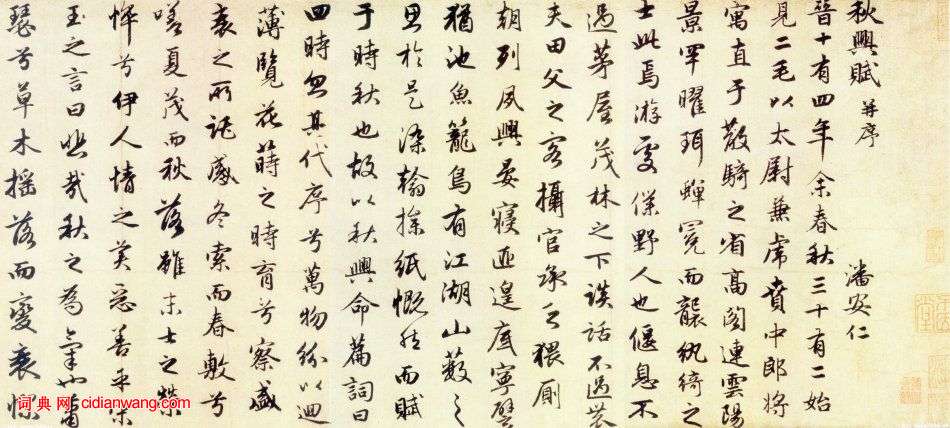 秋興賦 并序 潘安仁
晉十有四年余春秋三十有二始
見二毛以太尉兼虎賁中郎將
寓直于散騎之省高閣連雲陽
景罕曜珥蟬冕而襲紈綺之
士此焉游處僕野人也偃息不
過茅屋茂林之下談話不過農
夫田父之客攝官承乏猥廁
朝列夙興晏寢匪遑底寧譬
猶池魚籠鳥有江湖山藪之
思於是染翰操紙慨然而賦
于時秋也故以秋興命篇詞曰
四時忽其代序兮萬物紛以迴
薄覽花蒔之時育兮察盛
衰之所託感冬索而春敷兮
嗟夏茂而秋落雖末士之榮
悴兮伊人情之美惡善乎宋
玉之言曰悲哉秋之為氣也蕭
瑟兮草木搖落而變衰憀
词典网 cidianwang.com